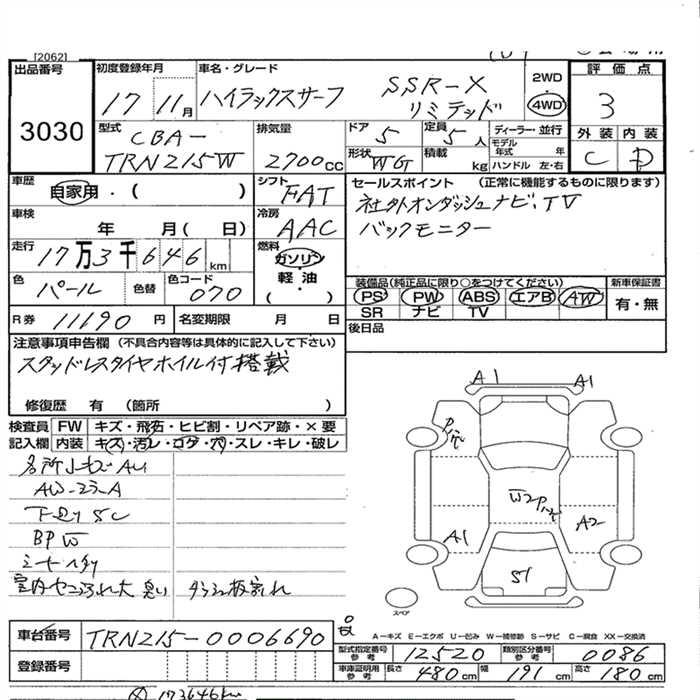 [2062]
出品番号 初度登録年月 車名・グレード 2WD 評価点
3030 17 11月 ハイラックスサーフ SSR-X リミテッド 4WD 3
型式 排気量 ドア 定員 ディーラー・並行 外装 内装
CBA-TRN215W 2700cc 5 5人 モデル年式 年 C D
形状 WG 積載 kg ハンドル 左・右
車歴 自家用・( ) シフト FAT セールスポイント (正常に機能するものに限ります)
車検 年 月(日) 冷房 AAC 社外オンダッシュナビ、TV
走行 17万3千646km 燃料 ガソリン バックモニター
色 パール 色替 色コード 070 軽油 ( )
装備品(純正品に限り○をつけてください) 新車保証書
PS PW ABS エアB AW 有・無
SR ナビ TV
R券 11190円 名変期限 月 日 後日品
注意事項申告欄 (不具合内容等は具体的に記入して下さい)
スタッドレスタイヤホイル付搭載
修復歴 有 (箇所 )
検査員 FW キズ・飛石・ヒビ割・リペア跡・×要
記入欄 内装 キズ・汚レ・コゲ・穴・スレ・キレ・破レ
AW-ランA
下回りSC
BPW
シートヘタリ
室内ヤニ汚れ大 臭い ダッシュ板割れ
A1 A1
A1 W2 A2
S1
スペア
A-キズ E-エクボ U-凹み W-補修跡 S-サビ C-腐食 XX-交換済
車台番号 TRN215-0006690
型式指定番号 参考 12520 類別区分番号 参考 0086
登録番号
車庫証明用 参考 長さ 480cm 幅 191cm 高さ 180cm
173646km